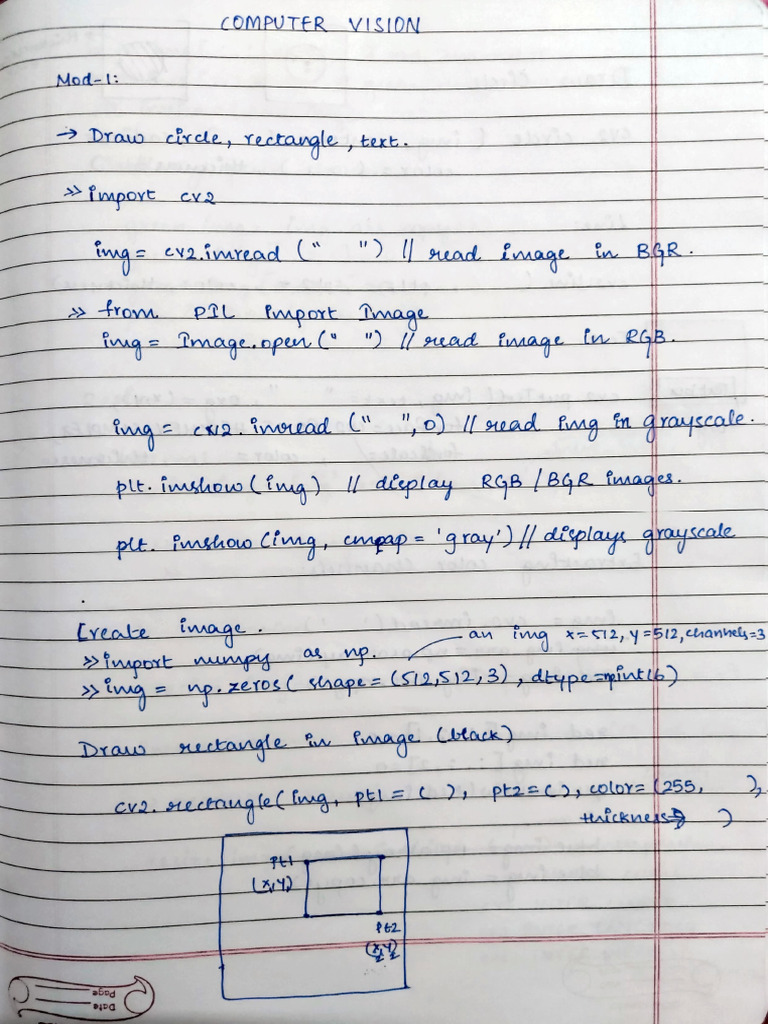 COMPUTER VISION
Mod-1:
→ Draw circle, rectangle, text.
>> import cv2
img = cv2.imread (" ") // read image in BGR.
>> from PIL import Image
img = Image.open (" ") // read image in RGB.
img = cv2.imread (" ", 0) // read img in grayscale.
plt. imshow (img) // display RGB / BGR images.
plt. imshow (img, cmap = 'gray') // displays grayscale
Create image.
an img x=512, y=512, channels=3
>> import numpy as np.
>> img = np.zeros( shape = (512,512,3), dtype=npint16)
Draw rectangle in image (black)
cv2. rectangle (img, pt1 = ( ), pt2 = ( ), color = (255, ),
thickness= )
pt1
(x,y)
pt2
Date
Page